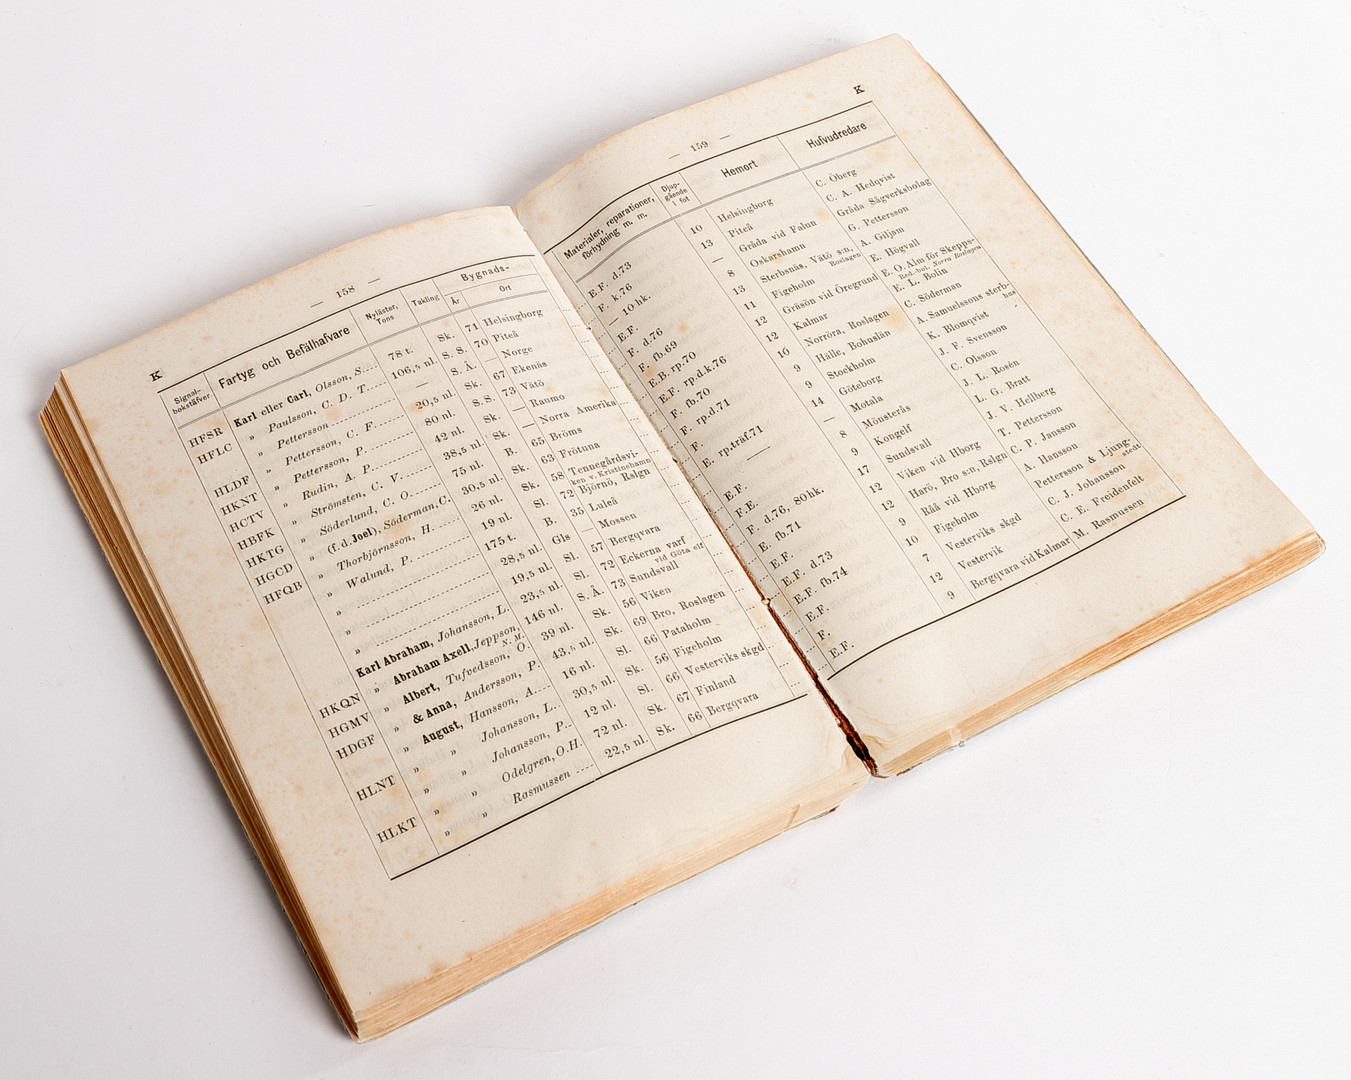 — 158 —
K
Signal-
bokstäfver
Fartyg och Befälhafvare
Nyläster,
Tons
Takling
Bygnads-
År
Ort
HFSR Karl eller Carl, Olsson, S. 78 t. Sk. 71 Helsingborg
HFLC „ Paulsson, C. D. T. 106,5 nl. S. S. 70 Piteå
„ Pettersson — S. Å. — Norge
HLDF „ Pettersson, C. F. 20,5 nl. Sk. 67 Ekenäs
HKNT „ Pettersson, P. 80 nl. S.S. 73 Vätö
HCTV „ Rudin, A. P. 42 nl. Sk. — Raumo
HBFK „ Strömsten, C. V. 38,5 nl. Sk. — Norra Amerika
HKTG „ Söderlund, C. O. 75 nl. B. 65 Bröms
HGCD „ (f. d. Joel), Söderman, C. 30,5 nl. Sk. 63 Frötuna
HFQB „ Thorbjörnsson, H. 26 nl. Sl. 58 Tennegårdsvi-
ken v. Kristinehamn
„ Walund, P. 19 nl. B. 72 Björnö, Rslgn
„ 175 t. Gls 35 Luleå
„ 28,5 nl. Sl. Mossen
„ 19,5 nl. Sl. 57 Bergqvara
Karl Abraham, Johansson, L. 23,5 nl. S. Å. 72 Eckerna varf
vid Göta elf
HKQN „ Abraham Axell, Jeppson,
N. M. 146 nl. Sk. 73 Sundsvall
HGMV „ Albert, Tufvedsson, O. 39 nl. Sk. 56 Viken
HDGF „ & Anna, Andersson, P. 43,5 nl. Sl. 69 Bro, Roslagen
„ August, Hansson, A. 16 nl. Sk. 66 Pataholm
HLNT „ „ Johansson, L. 30,5 nl. Sl. 56 Figeholm
„ „ Johansson, P. 12 nl. Sk. 66 Vesterviks skgd
HLKT „ „ Odelgren, O. H. 72 nl. Sk. 67 Finland
„ „ Rasmussen 22,5 nl. 66 Bergqvara
— 159 —
K
Materialer, reparationer,
förhydning m. m.
Djup-
gående
i fot
Hemort
Hufvudredare
E.F. d.73 10 Helsingborg C. Öberg
F. k.76 13 Piteå C. A. Hedqvist
— 10 hk. — Gråda vid Falun Gråda Sågverksbolag
E.F. 8 Oskarshamn G. Pettersson
F. d.76 13 Sterbsnäs, Vätö s:n,
Roslagen A. Giljam
F. fb.69 11 Figeholm E. Högvall
E.B. rp.70 12 Gräsön vid Öregrund E. O. Alm för Skepps-
Red.-bol. Norra Roslagen
E.F. rp.d.k.76 12 Kalmar E. L. Bolin
F. fb.70 10 Norröra, Roslagen C. Söderman
F. rp.d.71 9 Hälle, Bohuslän A. Samuelssons sterb-
hus
9 Stockholm K. Blomqvist
E. rp.träf.71 14 Göteborg J. F. Svensson
— Motala C. Olsson
8 Mönsterås J. L. Rosén
E.F. 9 Kongelf L. G. Bratt
F.E. 17 Sundsvall J. V. Hellberg
F. d.76, 80 hk. 12 Viken vid Hborg T. Pettersson
E. fb.71 12 Harö, Bro s:n, Rslgn C. P. Jansson
E.F. 9 Råå vid Hborg A. Hansson
E.F. d.73 10 Figeholm Pettersson & Ljung-
stedt
E.F. fb.74 7 Vesterviks skgd C. J. Johansson
E.F. 12 Vestervik C. E. Freidenfelt
F. 9 Bergqvara vid Kalmar M. Rasmussen
E.F.